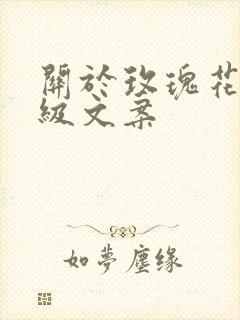 關於玫瑰花
級文案
如夢塵缘